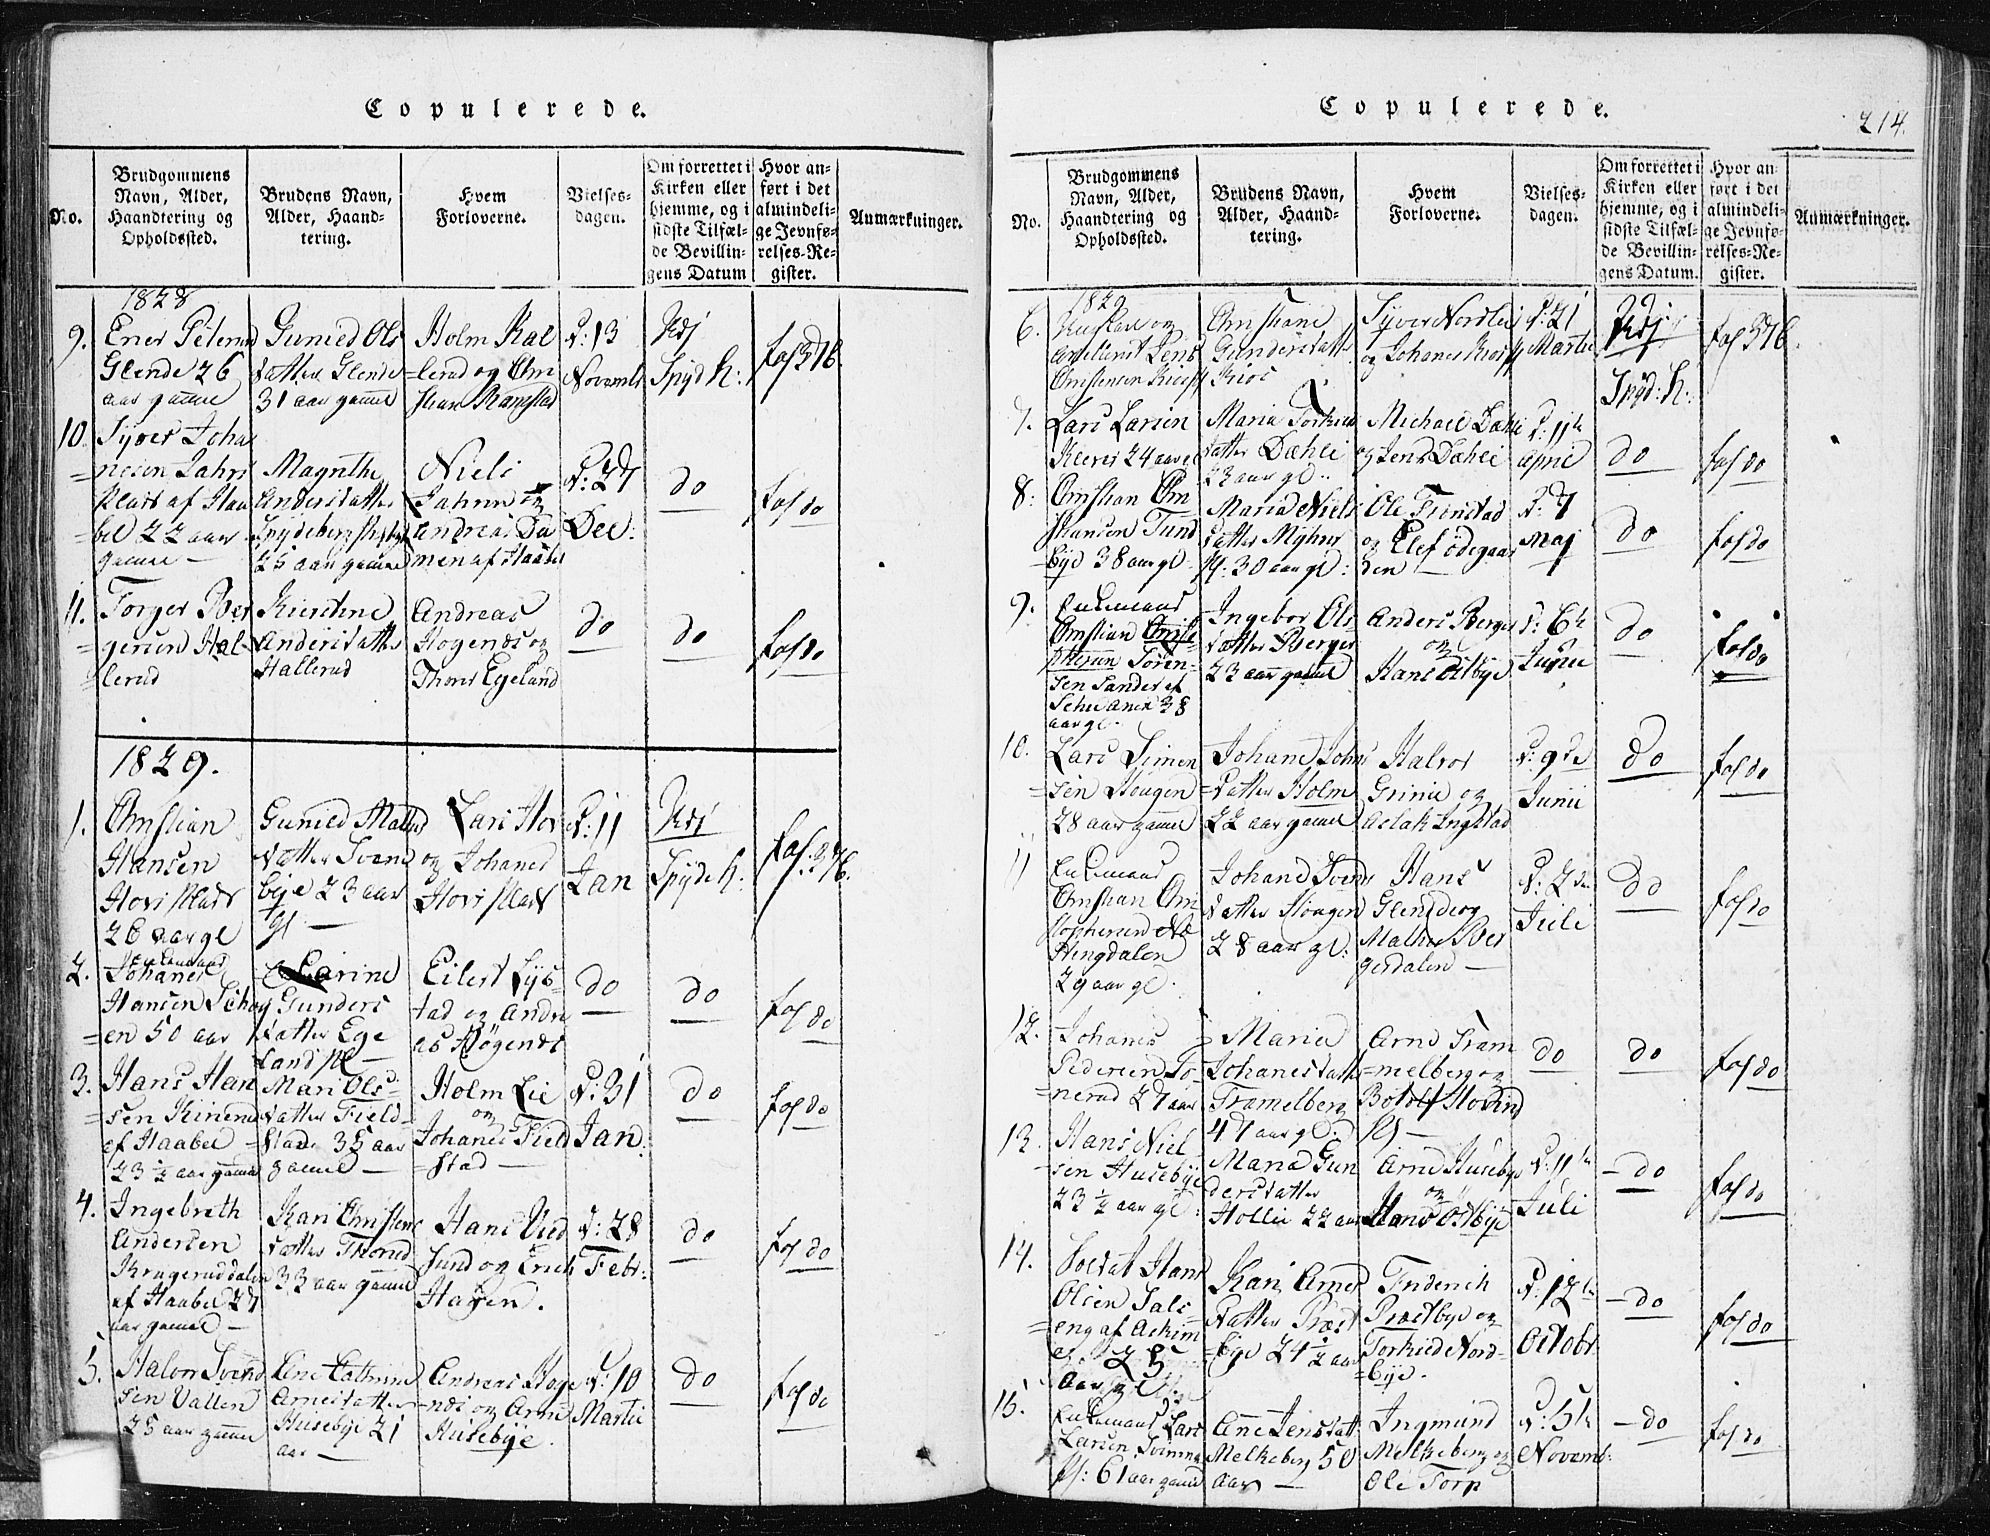 Copulerede.
No.
Brudgommens Navn, Alder, Haandtering og Opholdssted.
Brudens Navn, Alder, Haandtering.
Hvem Forloverne.
Vielses-dagen.
Om forrettet i Kirken eller hjemme, og i sidste Tilfælde Bevillingens Datum
Hvor anført i det almindelige Jevnførelses-Register.
Anmærkninger.
1828
9.
Ener
Glende 26
aar gamle
Gunild Ols
datter Glende
31 aar gamle
Holm Kal
=lerud og Chri
stian Ramstad
d: 13
Novembr
Spyd K:
fol 376.
10.
Syver Joha
=nesen
Plads af Haa
=bel 22 aar
gamle
Magnthe
Andersdatter
Spydeberg
25 aar gamle
Niels
og
Andreas Da
men af Haabel
d: 27
Dec:
do
fol do
11.
Torger Ber
=gersen Hal=
lerud
Kirstine
Andersdatter
Hallerud
Andreas
Hogenæs og
Thorer Egeland
do
do
fol do
1829.
1.
Christian
Hansen
Hovs plads
26 aar gl
Gunild Mathis
datter Svene
bye 23 aar
gl
Lars Hov
og Johanes
Hovs plads
d: 11
Jan
Spyde K:
fol: 376.
2.
Enkemand
Johanes
Hansen Schog
=en 50 aar
Karine
Gunders
datter Ege
land
Eilert Lys=
tad og Andre
as Høgenæs
do
do
fol do
3.
Hans Han
=sen
af Haabel
23 ½ aar gamle
Mari Ols
datter Field=
stad 35 aar
gamle
Holm Lie
og
Johanes Field
=stad
d: 31
Jan:
do
fol do
4.
Ingebreth
Andersen
Krageruddalen
af Haabel 27
aar gamle
Kari Christens
datter
33 aar gamle
Hans Vid
Sund og Erich
Hagen.
d: 28
Febr:
do
fol do
5.
Halvor Svend
sen Vallen
25 aar gamle
Ane Cathrine
Arnesdatter
Husebye 21
aar
Andreas Hoge
=næs og Arne
Husebye.
d: 10
Martii
do
fol do
Copulerede.
214.
No.
Brudgommens Navn, Alder, Haandtering og Opholdssted.
Brudens Navn, Alder, Haandtering.
Hvem Forloverne.
Vielses-dagen.
Om forrettet i Kirken eller hjemme, og i sidste Tilfælde Bevillingens Datum.
Hvor anført i det almindelige Jevnførelses-Register.
Anmærkninger.
1829
6.
og
Jens
Christensen
Christiane
Gundersdatter
Syver Nordlie
og Johanes
d: 21
Martii
Spyd: K:
fol 376.
7.
Lars Larsen
24 aar
Maria Torkels
datter Dæhli
23 aar gl
Michael Dæhli
og Jens Dæhli
d: 11te
April
do
fol do
8.
Christian Chri
stiansen Tund
=bye 38 aar gl
Maria Niels
datter
30 aar gl:
Ole Finstad
og Elef Ødegaar
den
d: 7
Maj
do
fol do
9.
Enkemand
Christian
Søren=
sen Sander af
38
aar gl.
Ingebor Ols
datter Berger
23 aar gamle
Anders Berger
og
Hans Østbye
d: 6te
Junii
do
fol do
10.
Lars Simen
=sen Hougen
28 aar gamle
Johane Johns
=datter Holm
22 aar gamle
Halvor
Grinie og
Aslak Ingstad
d: 9de
Junii
do
fol do
11
Enkemand
Christian Chri
stophersen Næ
29 aar gl.
Johane Svends
datter Hougen
28 aar gl:
Hans
Glendberg
Mathis Ber
gersdalen
d: 2den
Juli
do
fol do
12.
Johanes
Pedersen To=
=nerud 27 aar
Maria
Johanesdatter
Tramelberg
47 aar gl.
Arne Tram
=melberg og
Botolf Hovind
do
do
fol do
13.
Hans Niel
=sen Husebye
23 ½ aar gl:
Maria Gun
dersdatter
Hollie 22 aar
Arne Husebye
og
Hans Østbye
d: 11te
Juli
do
fol do
14.
Soldat Hans
Olsen Sals
=eng af Askim
25
aar gl
Kari Arnes
datter Præst
=bye 24 ½ aar
Friderich
Præstbye og
Torkild Nord=
=bye.
d: 12te
Octobr
do
fol do
15.
Enkemand Lars
Larsen
61 aar gamle
Ane Jensdatt
Melkeberg 50
aar
Ingmund
Melkeberg og
Ole Torp
d: 5te
Novemb:
do
fol do